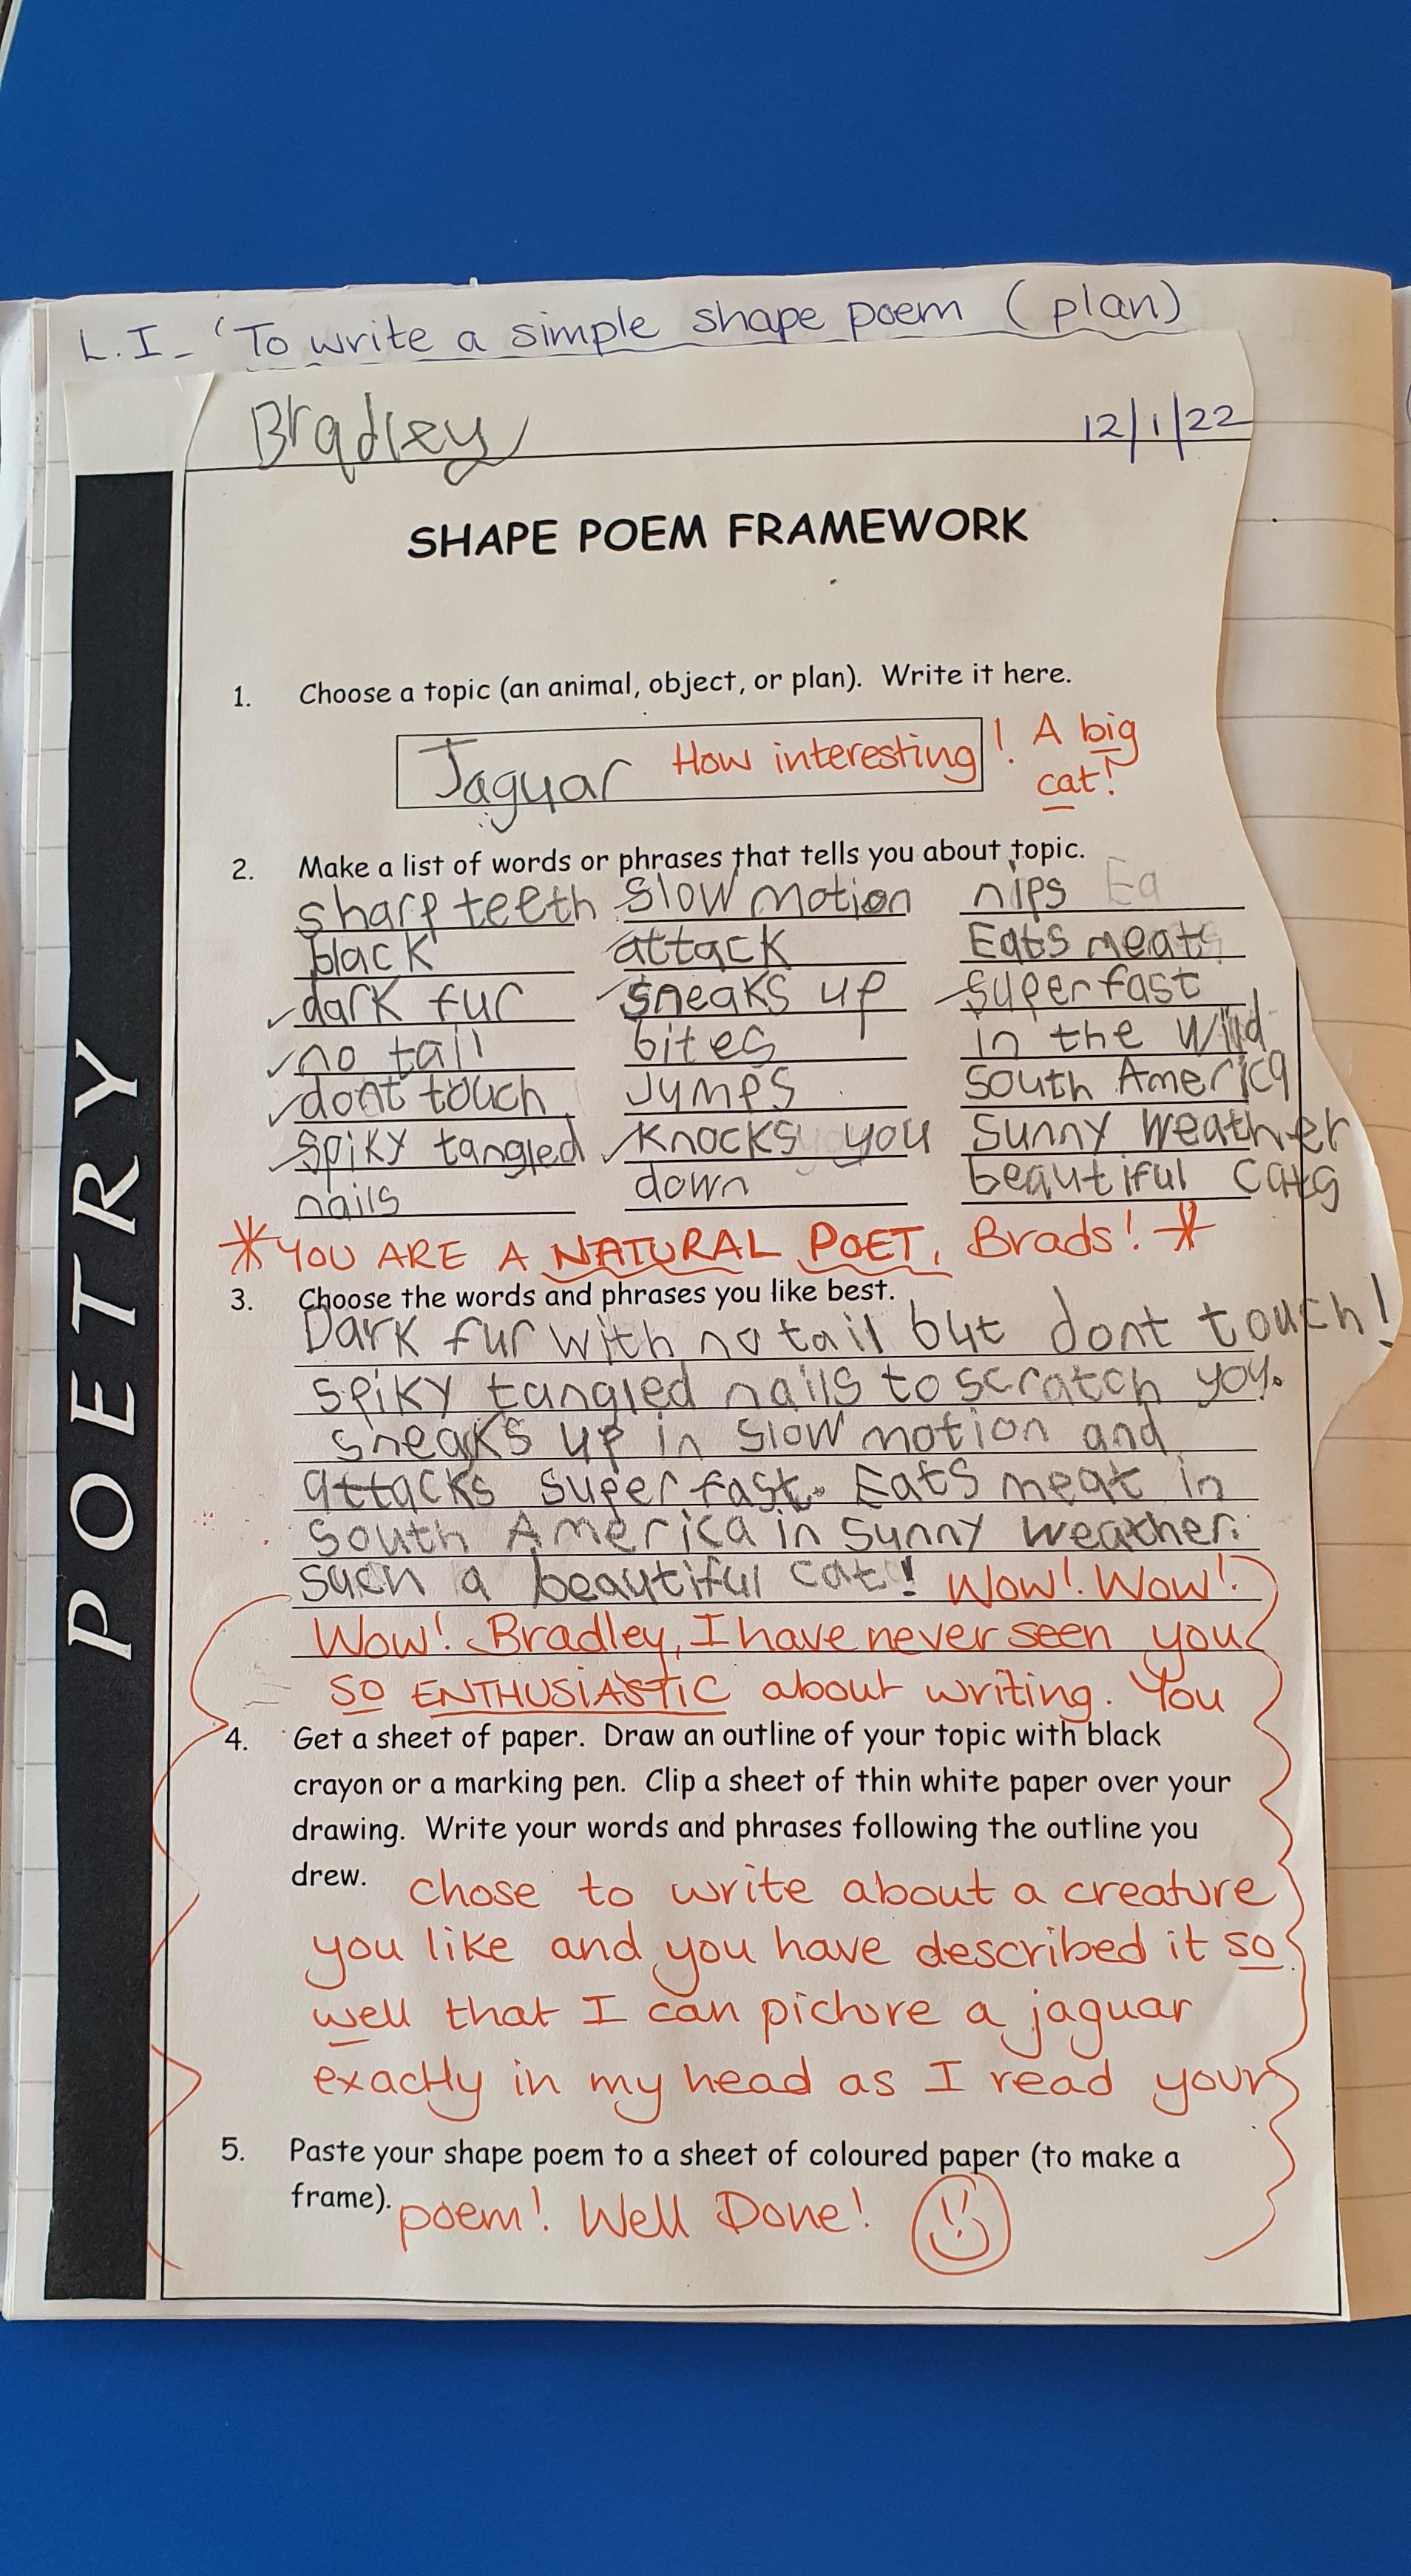 L.I - 'To write a simple shape poem (plan)
Bradley
12/1/22
POETRY
SHAPE POEM FRAMEWORK
1. Choose a topic (an animal, object, or plan). Write it here.
Jaguar How interesting! A big
cat!
2. Make a list of words or phrases that tells you about topic.
sharp teeth slow motion nips Ea
black attack Eats meats
dark fur sneaks up super fast
no tail bites in the wild
dont touch Jumps south America
spiky tangled knocks you sunny weather
nails down beautiful cats
* YOU ARE A NATURAL POET, Brads! *
3. Choose the words and phrases you like best.
Dark fur with no tail but dont touch!
spiky tangled nails to scratch you.
sneaks up in slow motion and
attacks super fast. Eats meat in
south America in sunny weather.
such a beautiful cat! Wow! Wow!
Wow! Bradley, I have never seen you
so ENTHUSIASTIC about writing. You
4. Get a sheet of paper. Draw an outline of your topic with black
crayon or a marking pen. Clip a sheet of thin white paper over your
drawing. Write your words and phrases following the outline you
drew. chose to write about a creature
you like and you have described it so
well that I can picture a jaguar
exactly in my head as I read your
5. Paste your shape poem to a sheet of coloured paper (to make a
frame). poem! Well Done!